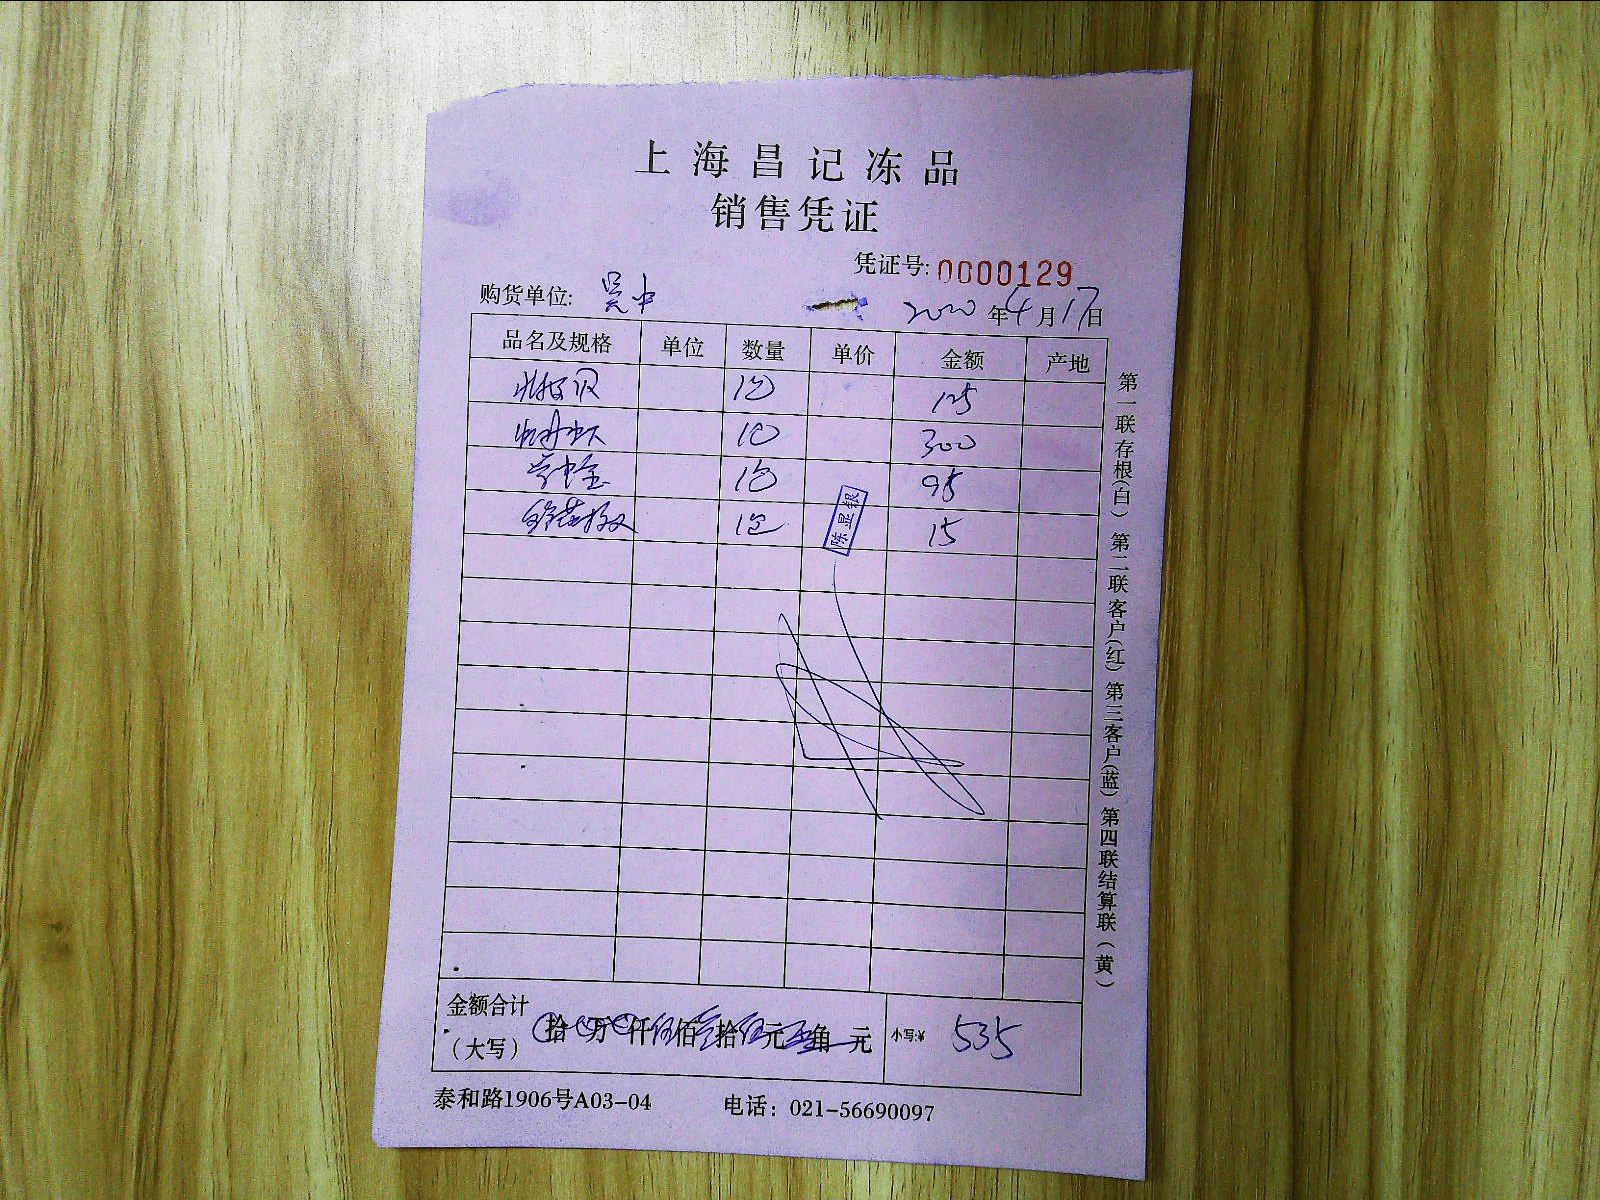 上海昌记冻品
销售凭证
凭证号: 0000129
购货单位: 吴中
2020 年 4 月 17 日
品名及规格 单位 数量 单价 金额 产地
125
300
95
15
陈显银
金额合计
(大写)
拾 万 仟 伍 佰 叁 拾 伍 元 角 元
小写:¥ 535
泰和路1906号A03-04 电话: 021-56690097
第一联存根(白) 第二联客户(红) 第三客户(蓝) 第四联结算联(黄)